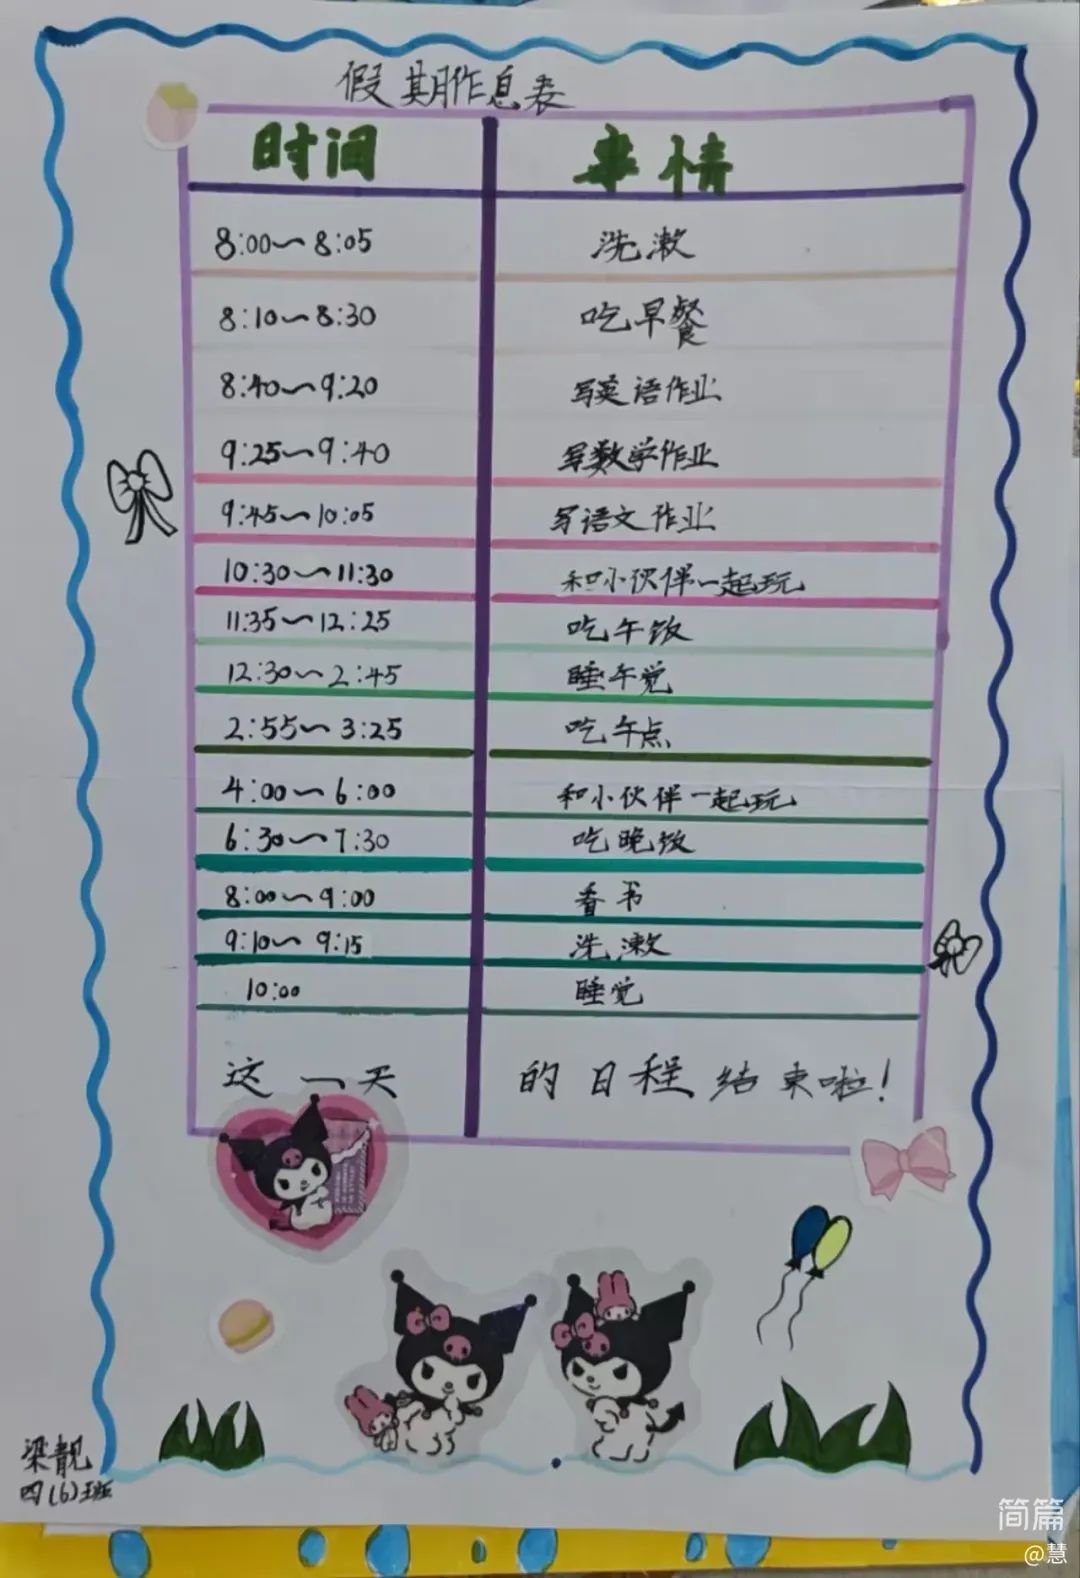 假期作息表
时间 事情
8:00～8:05 洗漱
8:10～8:30 吃早餐
8:40～9:20 写英语作业
9:25～9:40 写数学作业
9:45～10:05 写语文作业
10:30～11:30 和小伙伴一起玩
11:35～12:25 吃午饭
12:30～2:45 睡午觉
2:55～3:25 吃午点
4:00～6:00 和小伙伴一起玩
6:30～7:30 吃晚饭
8:00～9:00 看书
9:10～9:15 洗漱
10:00 睡觉
这一天的日程结束啦!
梁靓
四(6)班
简篇
@慧